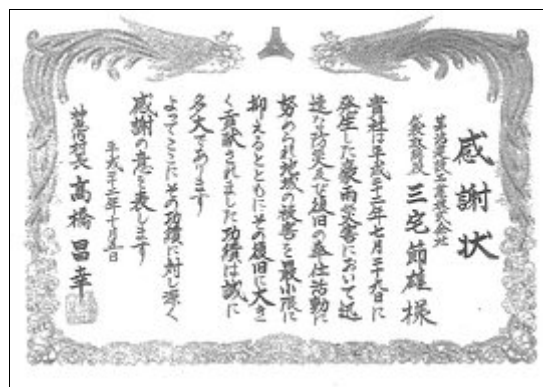 感謝状
工業株式会社
三宅節雄様
貴社は平成二十二年七月二十九日に
発生した豪雨災害において迅
速な防災及び復旧の奉仕活動に
努められ地域の被害を最小限に
抑えるとともにその復旧に大き
く貢献されました功績は誠に
多大であります
よってここにその功績に対し深く
感謝の意を表します
平成二十二年十月
村長 高橋昌幸